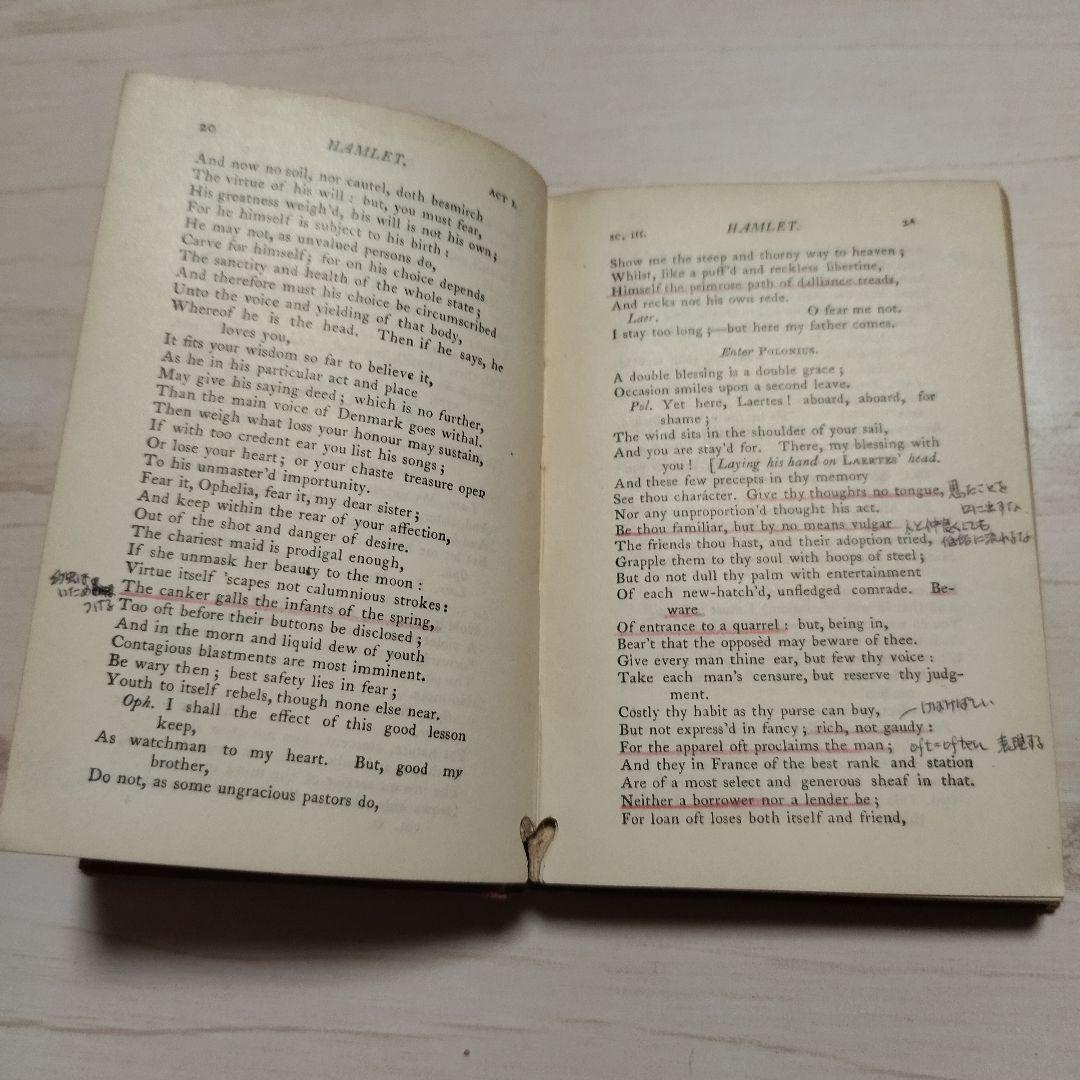 20
HAMLET.
ACT I.
And now no soil, nor cautel, doth besmirch
The virtue of his will: but, you must fear,
His greatness weigh'd, his will is not his own;
For he himself is subject to his birth:
He may not, as unvalued persons do,
Carve for himself; for on his choice depends
The sanctity and health of the whole state;
And therefore must his choice be circumscribed
Unto the voice and yielding of that body,
Whereof he is the head. Then if he says, he
loves you,
It fits your wisdom so far to believe it,
As he in his particular act and place
May give his saying deed; which is no further,
Than the main voice of Denmark goes withal.
Then weigh what loss your honour may sustain,
If with too credent ear you list his songs;
Or lose your heart; or your chaste treasure open
To his unmaster'd importunity.
Fear it, Ophelia, fear it, my dear sister;
And keep within the rear of your affection,
Out of the shot and danger of desire.
The chariest maid is prodigal enough,
If she unmask her beauty to the moon:
Virtue itself 'scapes not calumnious strokes:
The canker galls the infants of the spring,
Too oft before their buttons be disclosed;
And in the morn and liquid dew of youth
Contagious blastments are most imminent.
Be wary then; best safety lies in fear;
Youth to itself rebels, though none else near.
Oph. I shall the effect of this good lesson
keep,
As watchman to my heart. But, good my
brother,
Do not, as some ungracious pastors do,
sc. iii.
HAMLET.
Show me the steep and thorny way to heaven;
Whilst, like a puff'd and reckless libertine,
Himself the primrose path of dalliance treads,
And recks not his own rede.
Laer. O fear me not.
I stay too long;—but here my father comes.
Enter POLONIUS.
A double blessing is a double grace;
Occasion smiles upon a second leave.
Pol. Yet here, Laertes! aboard, aboard, for
shame;
The wind sits in the shoulder of your sail,
And you are stay'd for. There, my blessing with
you! [Laying his hand on LAERTES' head.
And these few precepts in thy memory
See thou charácter. Give thy thoughts no tongue, 思ったことを
口に出すな
Nor any unproportion'd thought his act.
Be thou familiar, but by no means vulgar 人と仲良くしても
The friends thou hast, and their adoption tried, に流れるな
Grapple them to thy soul with hoops of steel;
But do not dull thy palm with entertainment
Of each new-hatch'd, unfledged comrade. Be-
ware
Of entrance to a quarrel: but, being in,
Bear't that the opposèd may beware of thee.
Give every man thine ear, but few thy voice:
Take each man's censure, but reserve thy judg-
ment.
Costly thy habit as thy purse can buy, けばけばしい
But not express'd in fancy; rich, not gaudy:
For the apparel oft proclaims the man; oft=often 表現する
And they in France of the best rank and station
Are of a most select and generous sheaf in that.
Neither a borrower nor a lender be;
For loan oft loses both itself and friend,